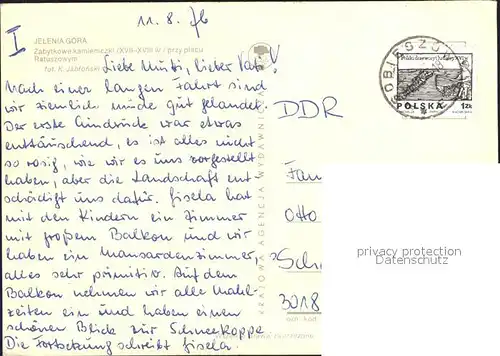 I
11. 8. 76
JELENIA GÓRA
Zabytkowe kamieniczki (XVII-XVIII w.) przy placu
Ratuszowym
fot. K. Jabłoński
Liebe Mutti, lieber Vati!
Nach einer langen Fahrt sind
wir ziemlich müde gut gelandet.
Der erste Eindruck war etwas
enttäuschend, es ist alles nicht
so rosig, wie wir es uns vorgestellt
haben, aber die Landschaft ent-
schädigt uns dafür. Gisela hat
mit den Kindern ein Zimmer
mit großem Balkon und wir
haben ein Mansardenzimmer,
alles sehr primitiv. Auf dem
Balkon nehmen wir alle Mahl-
zeiten ein und haben einen
schönen Blick zur Schneekoppe.
Die Fortsetzung schreibt Gisela.
KRAJOWA AGENCJA WYDAWNICZA
POLSKA 1ZŁ
DDR
Fam
Otto
Sch
3018
privacy protection
Datenschutz